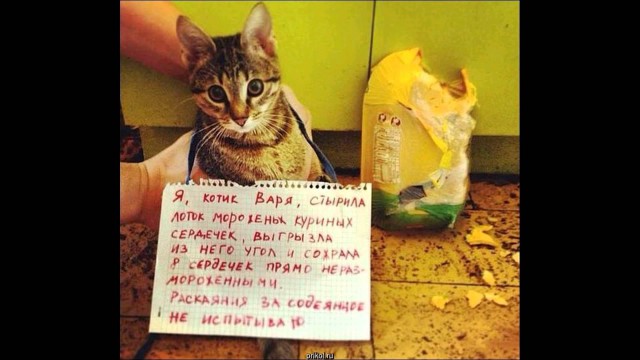 Я, КОТИК ВАРЯ, СТЫРИЛА
ЛОТОК МОРОЖЕНЫХ КУРИНЫХ
СЕРДЕЧЕК, ВЫГРЫЗЛА
ИЗ НЕГО УГОЛ И СОЖРАЛА
8 СЕРДЕЧЕК ПРЯМО НЕРАЗ-
МОРОЖЕННЫМИ.
РАСКАЯНИЯ ЗА СОДЕЯННОЕ
НЕ ИСПЫТЫВАЮ
prikol.ru